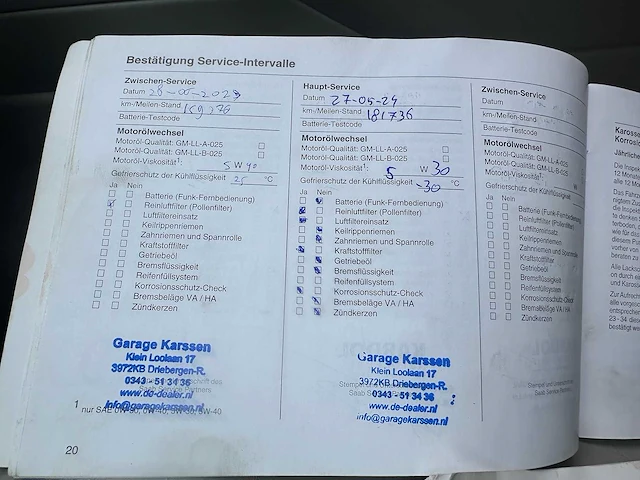 Bestätigung Service-Intervalle
Zwischen-Service
Datum
km-/Meilen-Stand
Batterie-Testcode
Motorölwechsel
Motoröl-Qualität: GM-LL-A-025
Motoröl-Qualität: GM-LL-B-025
Motoröl-Viskosität1: 5 W 40
Gefrierschutz der Kühlflüssigkeit 25 °C
Ja Nein
Batterie (Funk-Fernbedienung)
Reinluftfilter (Pollenfilter)
Luftfiltereinsatz
Keilrippenriemen
Zahnriemen und Spannrolle
Kraftstofffilter
Getriebeöl
Bremsflüssigkeit
Reifenfüllsystem
Korrosionsschutz-Check
Bremsbeläge VA / HA
Zündkerzen
Garage Karssen
Klein Loolaan 17
3972KB Driebergen-R.
0343 - 51 34 36
www.de-dealer.nl
info@garagekarssen.nl
1 nur SAE 0W-30, 0W-40, 5W-30, 5W-40
20
Haupt-Service
Datum 27-05-24
km-/Meilen-Stand 181736
Batterie-Testcode
Motorölwechsel
Motoröl-Qualität: GM-LL-A-025
Motoröl-Qualität: GM-LL-B-025
Motoröl-Viskosität1: 5 W 30
Gefrierschutz der Kühlflüssigkeit -30 °C
Ja Nein
Batterie (Funk-Fernbedienung)
Reinluftfilter (Pollenfilter)
Luftfiltereinsatz
Keilrippenriemen
Zahnriemen und Spannrolle
Kraftstofffilter
Getriebeöl
Bremsflüssigkeit
Reifenfüllsystem
Korrosionsschutz-Check
Bremsbeläge VA / HA
Zündkerzen
Garage Karssen
Klein Loolaan 17
3972KB Driebergen-R.
0343 - 51 34 36
www.de-dealer.nl
info@garagekarssen.nl
Zwischen-Service
Datum
km-/Meilen-Stand
Batterie-Testcode
Motorölwechsel
Motoröl-Qualität: GM-LL-A-025
Motoröl-Qualität: GM-LL-B-025
Motoröl-Viskosität1: W
Gefrierschutz der Kühlflüssigkeit
Ja Nein
Batterie (Funk-Fernbedienung)
Reinluftfilter (Pollenfilter)
Luftfiltereinsatz
Keilrippenriemen
Zahnriemen und Spannrolle
Kraftstofffilter
Getriebeöl
Bremsflüssigkeit
Reifenfüllsystem
Korrosionsschutz-Check
Bremsbeläge VA / HA
Zündkerzen